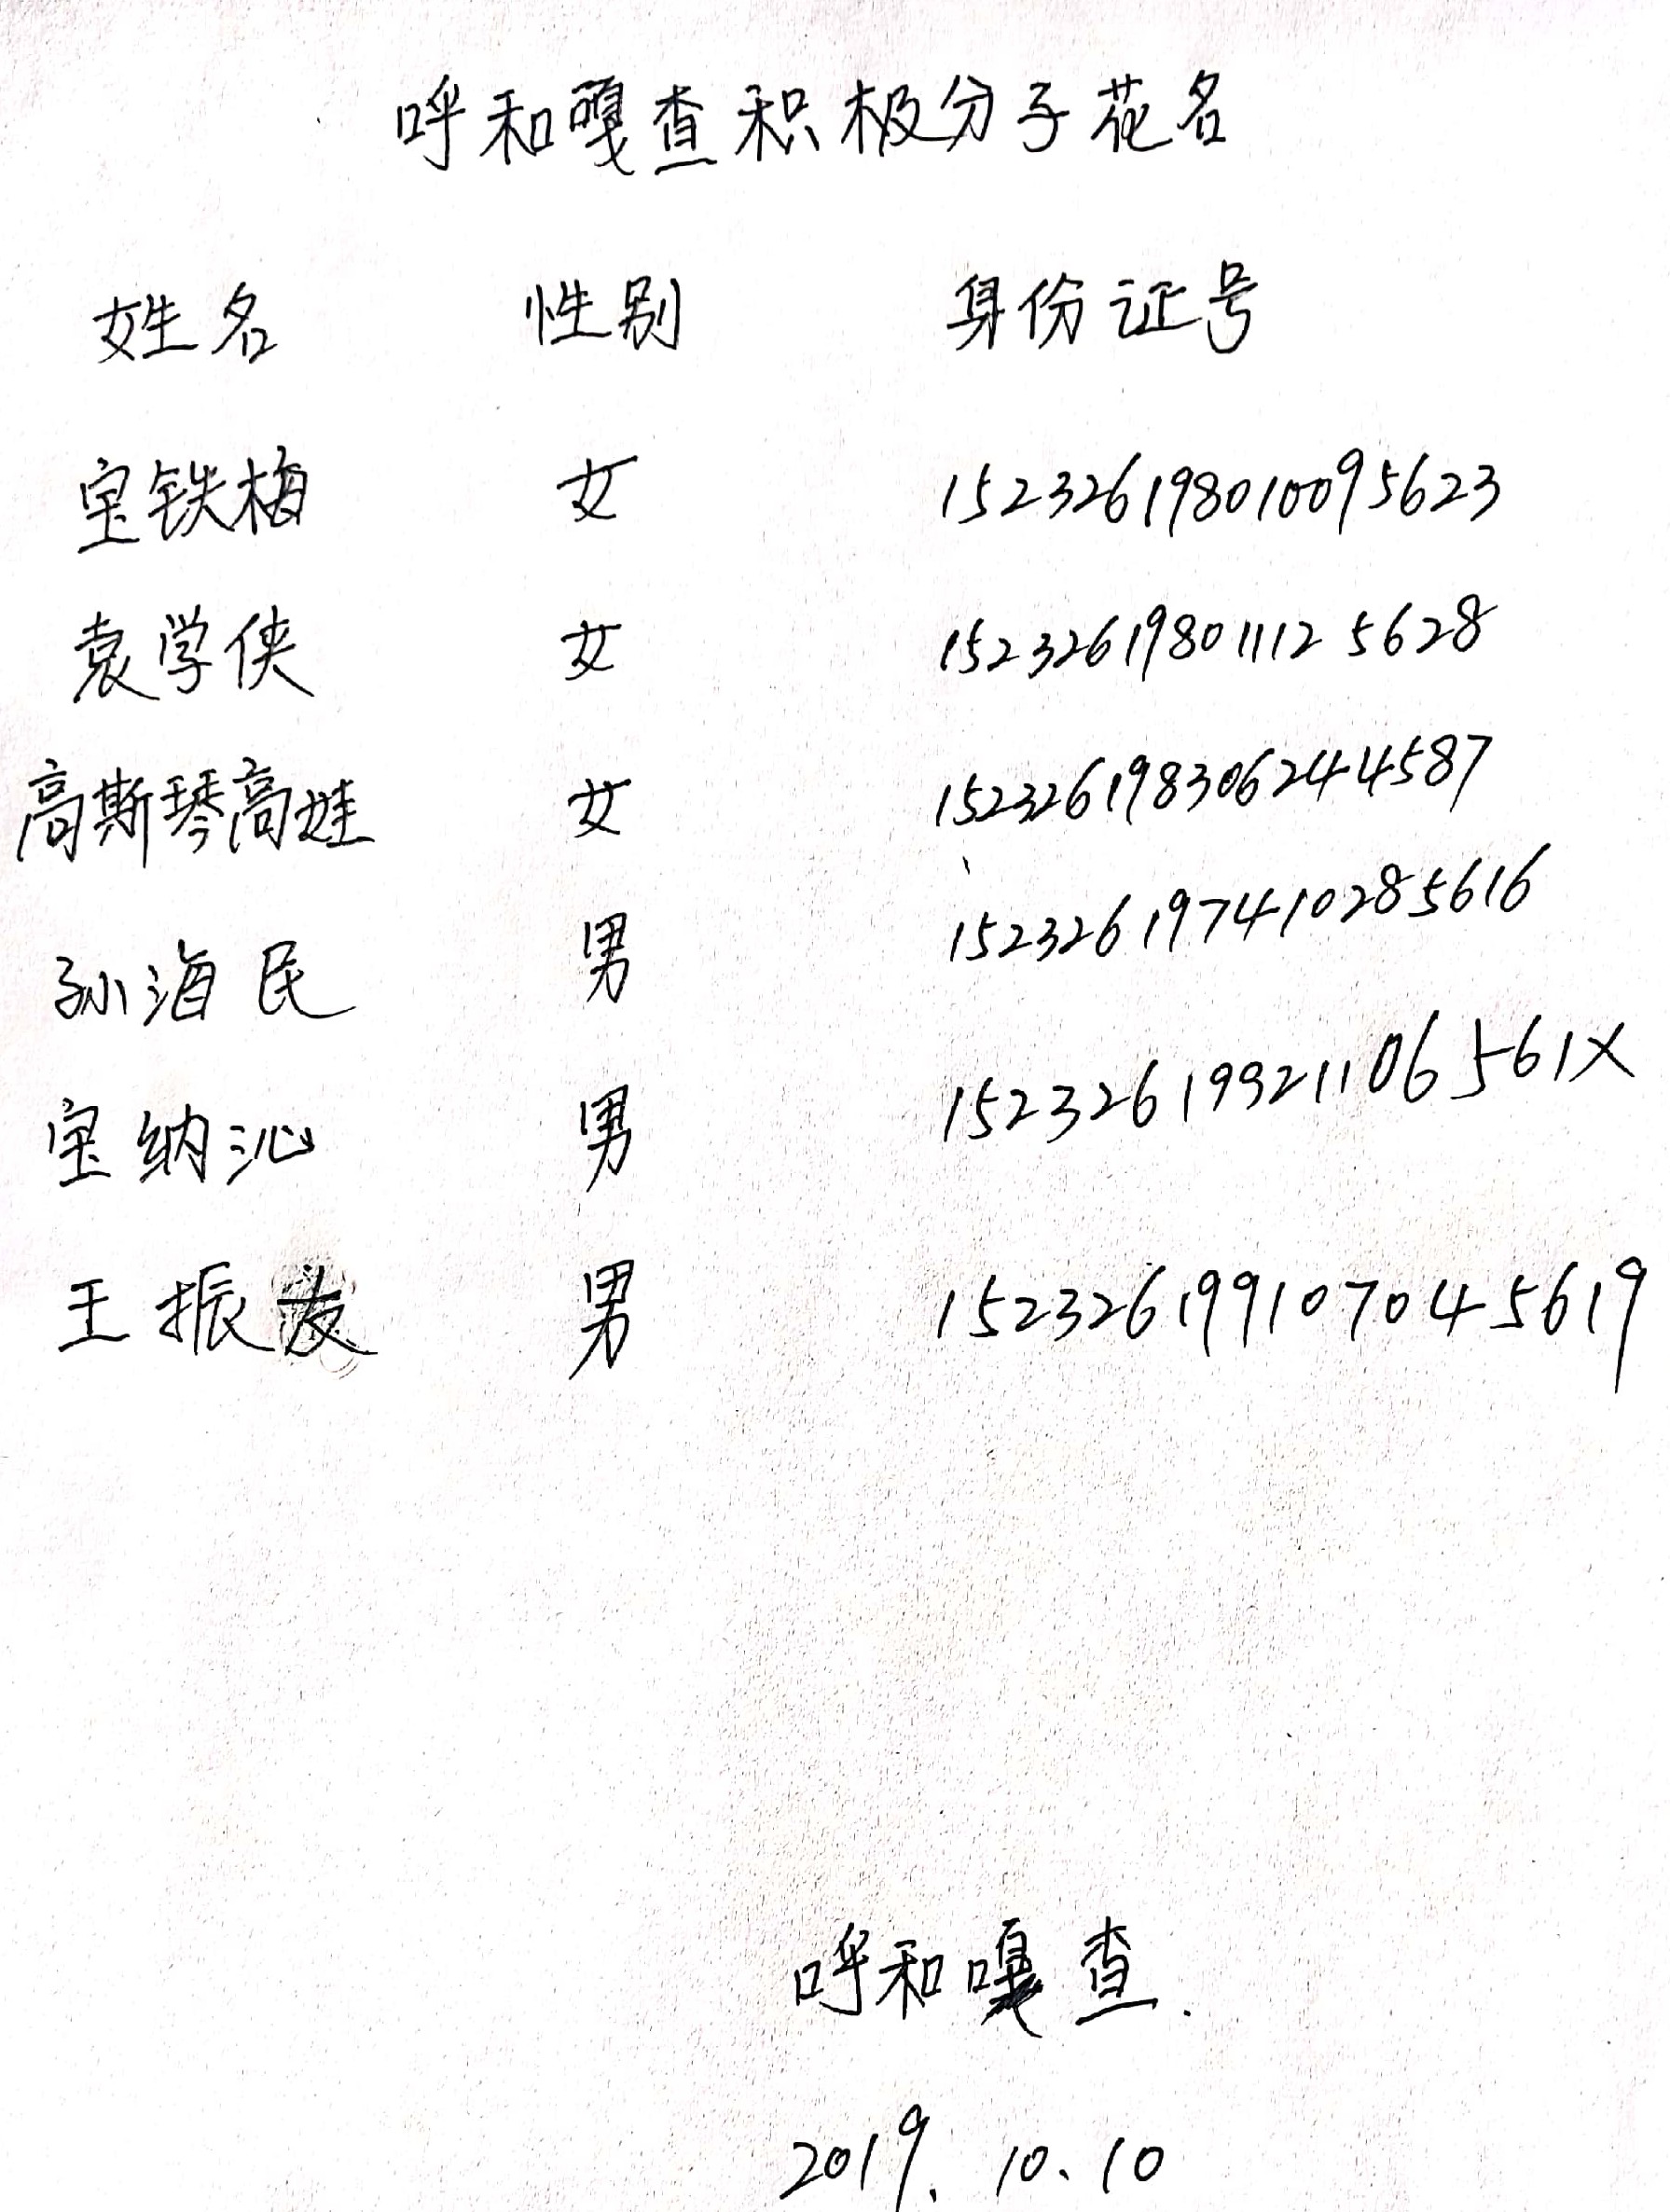 呼和嘎查积极分子花名
姓名 性别 身份证号
宝铁梅 女 152326198010095623
袁学侠 女 152326198011125628
高斯琴高娃 女 152326198306244587
孙海民 男 152326197410285616
宝纳沁 男 15232619921106561X
王振友 男 152326199107045619
呼和嘎查.
2019.10.10